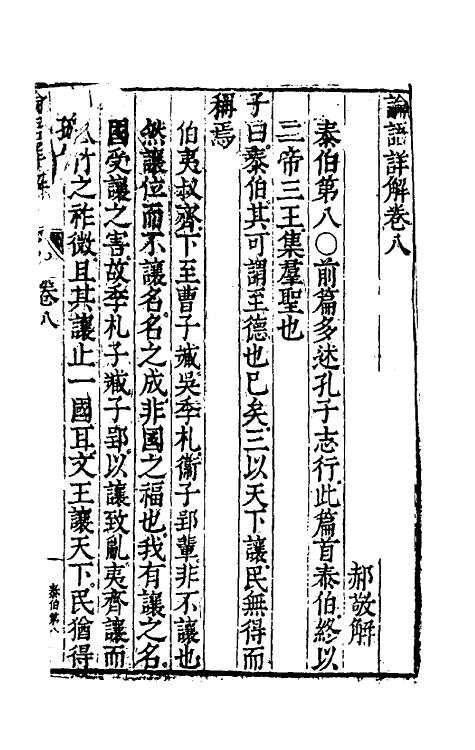 論語詳解卷八
郝敬解
泰伯第八○前篇多述孔子志行此篇首泰伯終以
三帝三王集羣聖也
子曰泰伯其可謂至德也已矣三以天下讓民無得而
稱焉
伯夷叔齊下至曹子臧吳季札衞子郢輩非不讓也
然讓位而不讓名名之成非國之福也我有讓之名
國受讓之害故季札子臧子郢以讓致亂夷齊讓而
竹之祚微且其讓止一國耳文王讓天下民猶得
卷八
一
泰伯第八